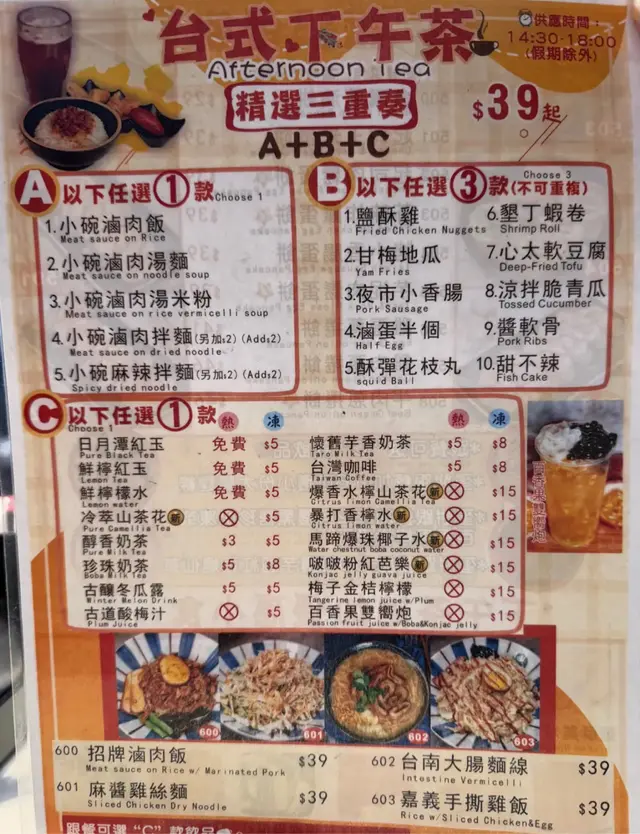 台式下午茶
Afternoon Tea
供應時間：
14:30-18:00
(假期除外)
精選三重奏
$39起
A+B+C
A 以下任選①款 Choose 1
1.小碗滷肉飯
Meat sauce on Rice
2.小碗滷肉湯麵
Meat sauce on noodle soup
3.小碗滷肉湯米粉
Meat sauce on rice vermicelli soup
4.小碗滷肉拌麵(另加$2) (Add$2)
Meat sauce on dried noodle
5.小碗麻辣拌麵(另加$2) (Add$2)
Spicy dried noodle
B 以下任選③款(不可重複) Choose 3
1.鹽酥雞
Fried Chicken Nuggets
2.甘梅地瓜
Yam Fries
3.夜市小香腸
Pork Sausage
4.滷蛋半個
Half Egg
5.酥彈花枝丸
squid Ball
6.墾丁蝦卷
Shrimp Roll
7.心太軟豆腐
Deep-Fried Tofu
8.涼拌脆青瓜
Tossed Cucumber
9.醬軟骨
Pork Ribs
10.甜不辣
Fish Cake
C 以下任選①款 熱 凍
Choose 1
日月潭紅玉 免費 $5
Pure Black Tea
鮮檸紅玉 免費 $5
Lemon Tea
鮮檸檬水 免費 $5
Lemon water
冷萃山茶花 新 $5
Pure Camellia Tea
醇香奶茶 $3 $5
Pure Milk Tea
珍珠奶茶 $5 $8
Boba Milk Tea
古釀冬瓜露 $5 $5
Winter Melon Drink
古道酸梅汁 $5
Plum Juice
熱 凍
懷舊芋香奶茶 $5 $8
Taro Milk Tea
台灣咖啡 $5 $8
Taiwan Coffee
爆香水檸山茶花 新 $15
Citrus limon Camellia Tea
暴打香檸水 新 $15
Citrus limon water
馬蹄爆珠椰子水 新 $15
Water chestnut boba coconut water
啵啵粉紅芭樂 新 $15
Konjac jelly guava juice
梅子金桔檸檬 $15
Tangerine lemon juice w/Plum
百香果雙嚮炮 $15
Passion fruit juice w/Boba&Konjac jelly
百香果雙嚮炮
600
601
602
603
600 招牌滷肉飯 $39
Meat sauce on Rice w/ Marinated Pork
601 麻醬雞絲麵 $39
Sliced Chicken Dry Noodle
602 台南大腸麵線 $39
Intestine Vermicelli
603 嘉義手撕雞飯 $39
Rice w/Sliced Chicken&Egg
跟餐可選 "C" 款飲品